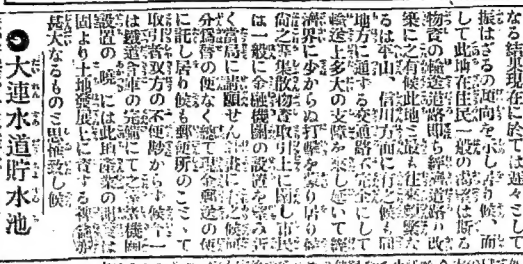 なる結果現在に於ては遅々として
振はざるの傾向を示し居り候、而
して此地在住民一般の渇望は斯る
物資の輸送道路即ち經濟道路の改
築に之有候此地と最も往來頻繁な
るは平山、信川方面に有之候も同
地方に通ずる交通路不完全にして
輸送上多大の支障を來し延いて經
濟界に少からぬ打撃を蒙り居り候
尚之等集散物資取引上に關し市民
は一般に金融機關の設置を望み近
く當局に請願せん計畫に有之候何
分爲替の便なく總て現金郵送の便
に託し居り候も郵便所のこととて
取引者双方の不便尠からず候、一
は鐵道の完備にて之等機關
設置の曉には此地産業の開發は
固より土地發展上に資する裨益
甚大なるものと思惟致し候
●大連水道貯水池